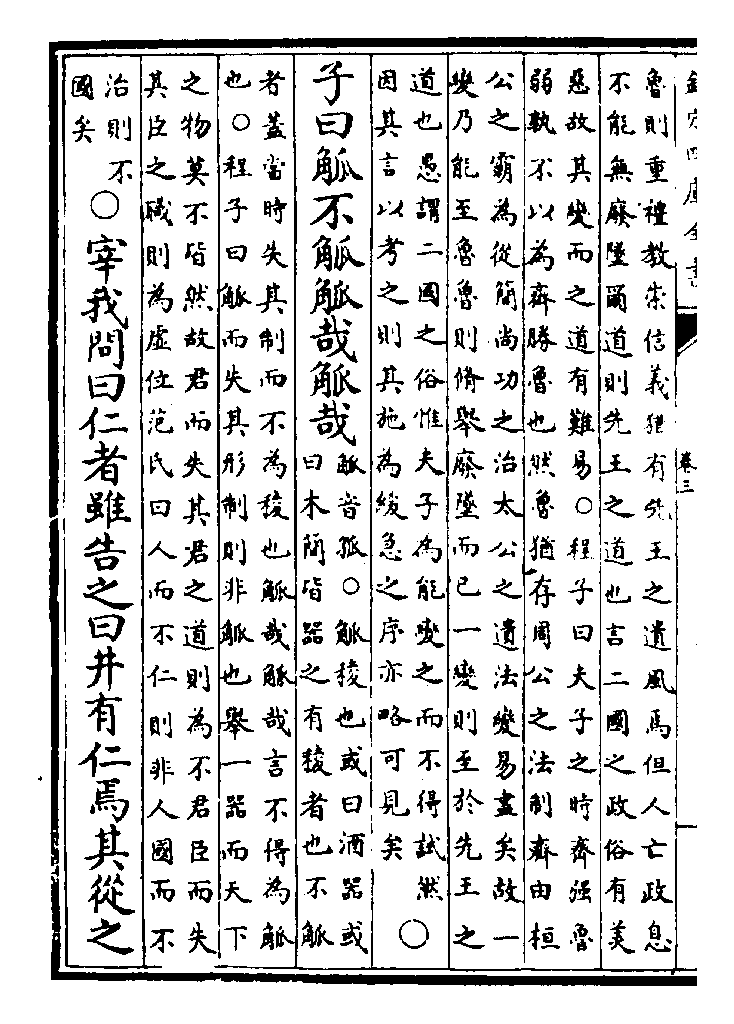 欽定四庫全書
卷三
魯則重禮教崇信義猶有先王之遺風焉但人亡政息
不能無廢墜爾道則先王之道也言二國之政俗有美
惡故其變而之道有難易○程子曰夫子之時齊强魯
弱孰不以為齊勝魯也然魯猶存周公之法制齊由桓
公之霸為從簡尚功之治太公之遺法變易盡矣故一
變乃能至魯魯則脩舉廢墜而已一變則至於先王之
道也愚謂二國之俗惟夫子為能變之而不得試然
因其言以考之則其施為緩急之序亦略可見矣
○
子曰觚不觚觚哉觚哉
觚音孤○觚稜也或曰酒器或
曰木簡皆器之有稜者也不觚
者蓋當時失其制而不為稜也觚哉觚哉言不得為觚
也○程子曰觚而失其形制則非觚也舉一器而天下
之物莫不皆然故君而失其君之道則為不君臣而失
其臣之職則為虛位范氏曰人而不仁則非人國而不
治則不
國矣
○宰我問曰仁者雖告之曰井有仁焉其從之